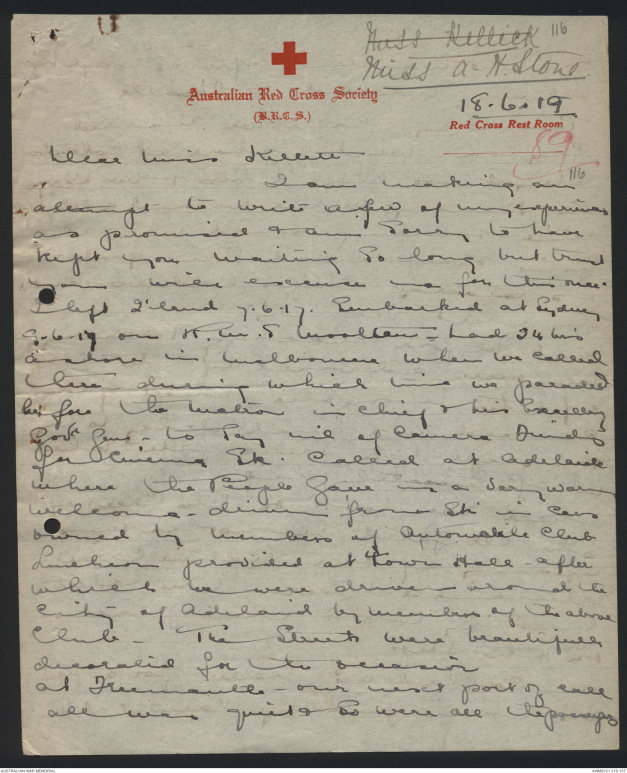 116
Miss Kellick
Miss A. H. Stone.
Australian Red Cross Society
(B.R.C.S.)
18.6.19
Red Cross Rest Room
89
Dear Miss Kellett
116
I am making an
attempt to write a few of my experiences
as promised & am sorry to have
kept you waiting so long but trust
you will excuse me for this once.
I left Q'land 7.6.17. Embarked at Sydney
9.6.17 on R.M.S Mooltan – had 24 hrs
ashore in Melbourne when we called
there during which time we paraded
before the Matron in Chief & his Excellency
Govt Gen – to say nil of Camera
for Cinema Etc. Called at Adelaide
where the People gave us a very warm
welcome – driven from Stn in cars
owned by members of Automobile Club
Luncheon provided at Town Hall – after
which we were driven around the
City of Adelaid by members of the above
Club – The Streets were beautifully
decorated for the occasion
at Freemantle – our next port of call
all was quiet & so were all the
AUSTRALIAN WAR MEMORIAL